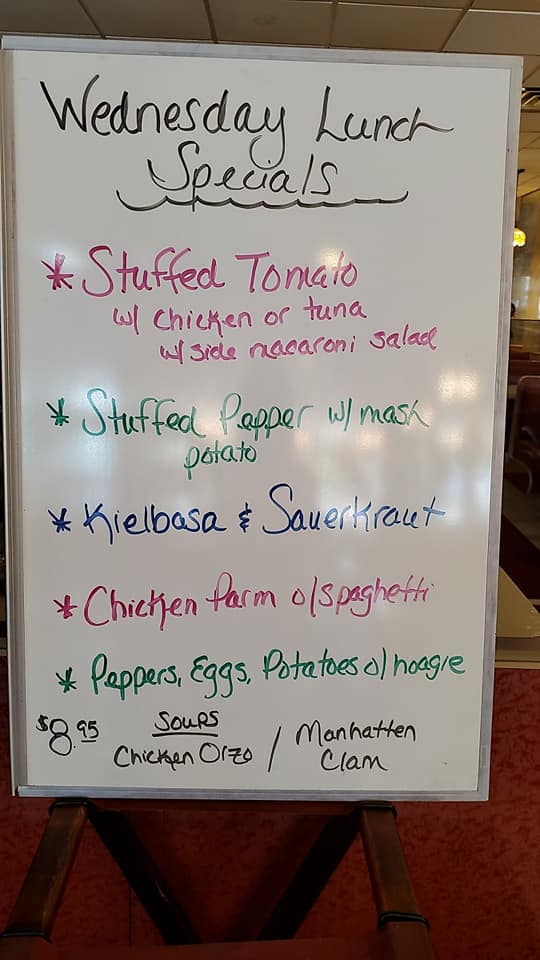 Wednesday Lunch
Specials
* Stuffed Tomato
w/ chicken or tuna
w/ side macaroni salad
* Stuffed Pepper w/ mash
potato
* Kielbasa & Sauerkraut
* Chicken Parm o/spaghetti
* Peppers, Eggs, Potatoes o/ hoagie
$8.95 Soups
Chicken Orzo / Manhatten
Clam